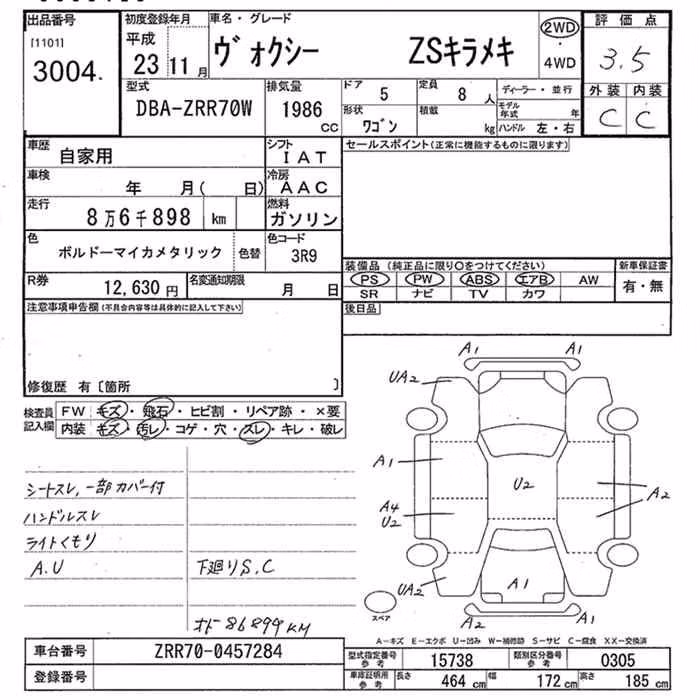 出品番号 初度登録年月 車名・グレード 評価点
[1101] 平成 ヴォクシー ZSキラメキ 2WD・4WD 3.5
3004. 23 11月
型式 排気量 ドア 定員 ディーラー・並行 外装 内装
DBA-ZRR70W 1986 CC 5 8人 モデル年式 年 C C
形状 ワゴン 積載 kg ハンドル 左・右
車歴 自家用 シフト IAT セールスポイント(正常に機能するものに限ります)
車検 年 月( 日) 冷房 AAC
走行 8万6千898 km 燃料 ガソリン
色 ボルドーマイカメタリック 色替 色コード 3R9
装備品 (純正品に限り○をつけてください) 新車保証書
R券 12,630円 名変通知期限 月 日 PS PW ABS エアB AW 有・無
SR ナビ TV カワ
注意事項申告欄(不具合内容等は具体的に記入して下さい) 後日品
修復歴 有〔箇所 〕
検査員記入欄 FW キズ・飛石・ヒビ割・リペア跡・×要
内装 キズ・汚レ・コゲ・穴・スレ・キレ・破レ
A1 A1
UA2
A1
U2
A2
A4
U2
UA2
A1
A2 A1
スペア
シートスレ,一部カバー付
ハンドルスレ
ライトくもり
A.U 下廻りS,C
オド86899KM
A−キズ E−エクボ U−凹み W−補修跡 S−サビ C−腐食 XX−交換済
車台番号 ZRR70-0457284 型式指定番号 参考 15738 類別区分番号 参考 0305
登録番号 車庫証明用 参考 長さ 464cm 幅 172cm 高さ 185cm